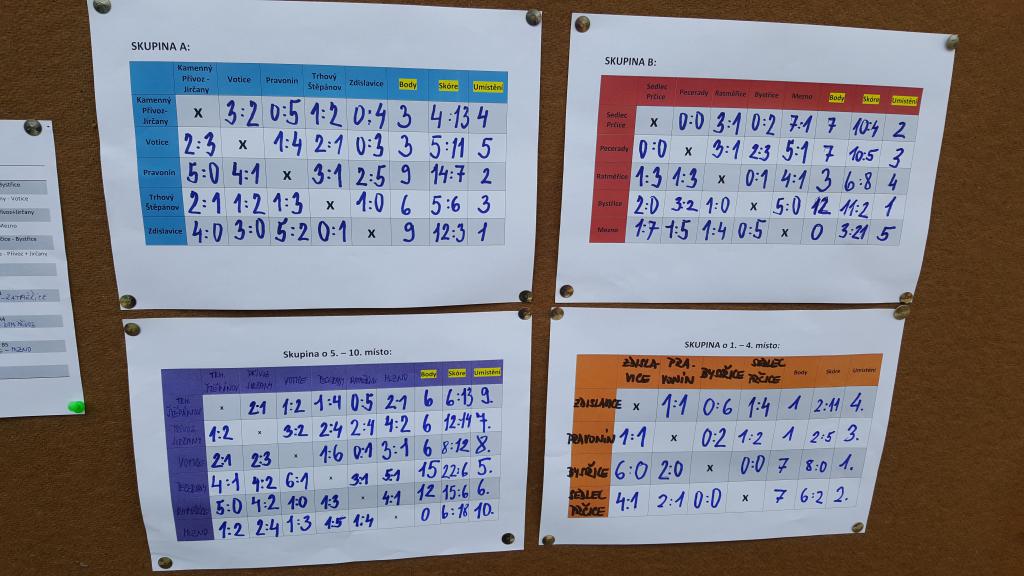 SKUPINA A:
Kamenný Přívoz - Jirčany Votice Pravonín Trhový Štěpánov Zdislavice Body Skóre Umístění
Kamenný Přívoz- Jirčany x 3:2 0:5 1:2 0:4 3 4:13 4
Votice 2:3 x 1:4 2:1 0:3 3 5:11 5
Pravonín 5:0 4:1 x 3:1 2:5 9 14:7 2
Trhový Štěpánov 2:1 1:2 1:3 x 1:0 6 5:6 3
Zdislavice 4:0 3:0 5:2 0:1 x 9 12:3 1
SKUPINA B:
Sedlec Prčice Pecerady Ratměřice Bystřice Mezno Body Skóre Umístění
Sedlec Prčice x 0:0 3:1 0:2 7:1 7 10:4 2
Pecerady 0:0 x 3:1 2:3 5:1 7 10:5 3
Ratměřice 1:3 1:3 x 0:1 4:1 3 6:8 4
Bystřice 2:0 3:2 1:0 x 5:0 12 11:2 1
Mezno 1:7 1:5 1:4 0:5 x 0 3:21 5
Skupina o 5. – 10. místo:
TRH. ŠTĚPÁNOV PŘÍVOZ JIRČANY VOTICE PECERADY RATMĚŘICE MEZNO Body Skóre Umístění
TRH. ŠTĚPÁNOV x 2:1 1:2 1:4 0:5 2:1 6 6:13 9.
PŘÍVOZ JIRČANY 1:2 x 3:2 2:4 2:4 4:2 6 12:14 7.
VOTICE 2:1 2:3 x 1:6 0:1 3:1 6 8:12 8.
PECERADY 4:1 4:2 6:1 x 3:1 5:1 15 22:6 5.
RATMĚŘICE 5:0 4:2 1:0 1:3 x 4:1 12 15:6 6.
MEZNO 1:2 2:4 1:3 1:5 1:4 0 6:18 10.
Skupina o 1. – 4. místo:
ZDISLAVICE PRAVONÍN BYSTŘICE SEDLEC PRČICE Body Skóre Umístění
ZDISLAVICE x 1:1 0:6 1:4 1 2:11 4.
PRAVONÍN 1:1 x 0:2 1:2 1 2:5 3.
BYSTŘICE 6:0 2:0 x 0:0 7 8:0 1.
SEDLEC PRČICE 4:1 2:1 0:0 x 7 6:2 2.